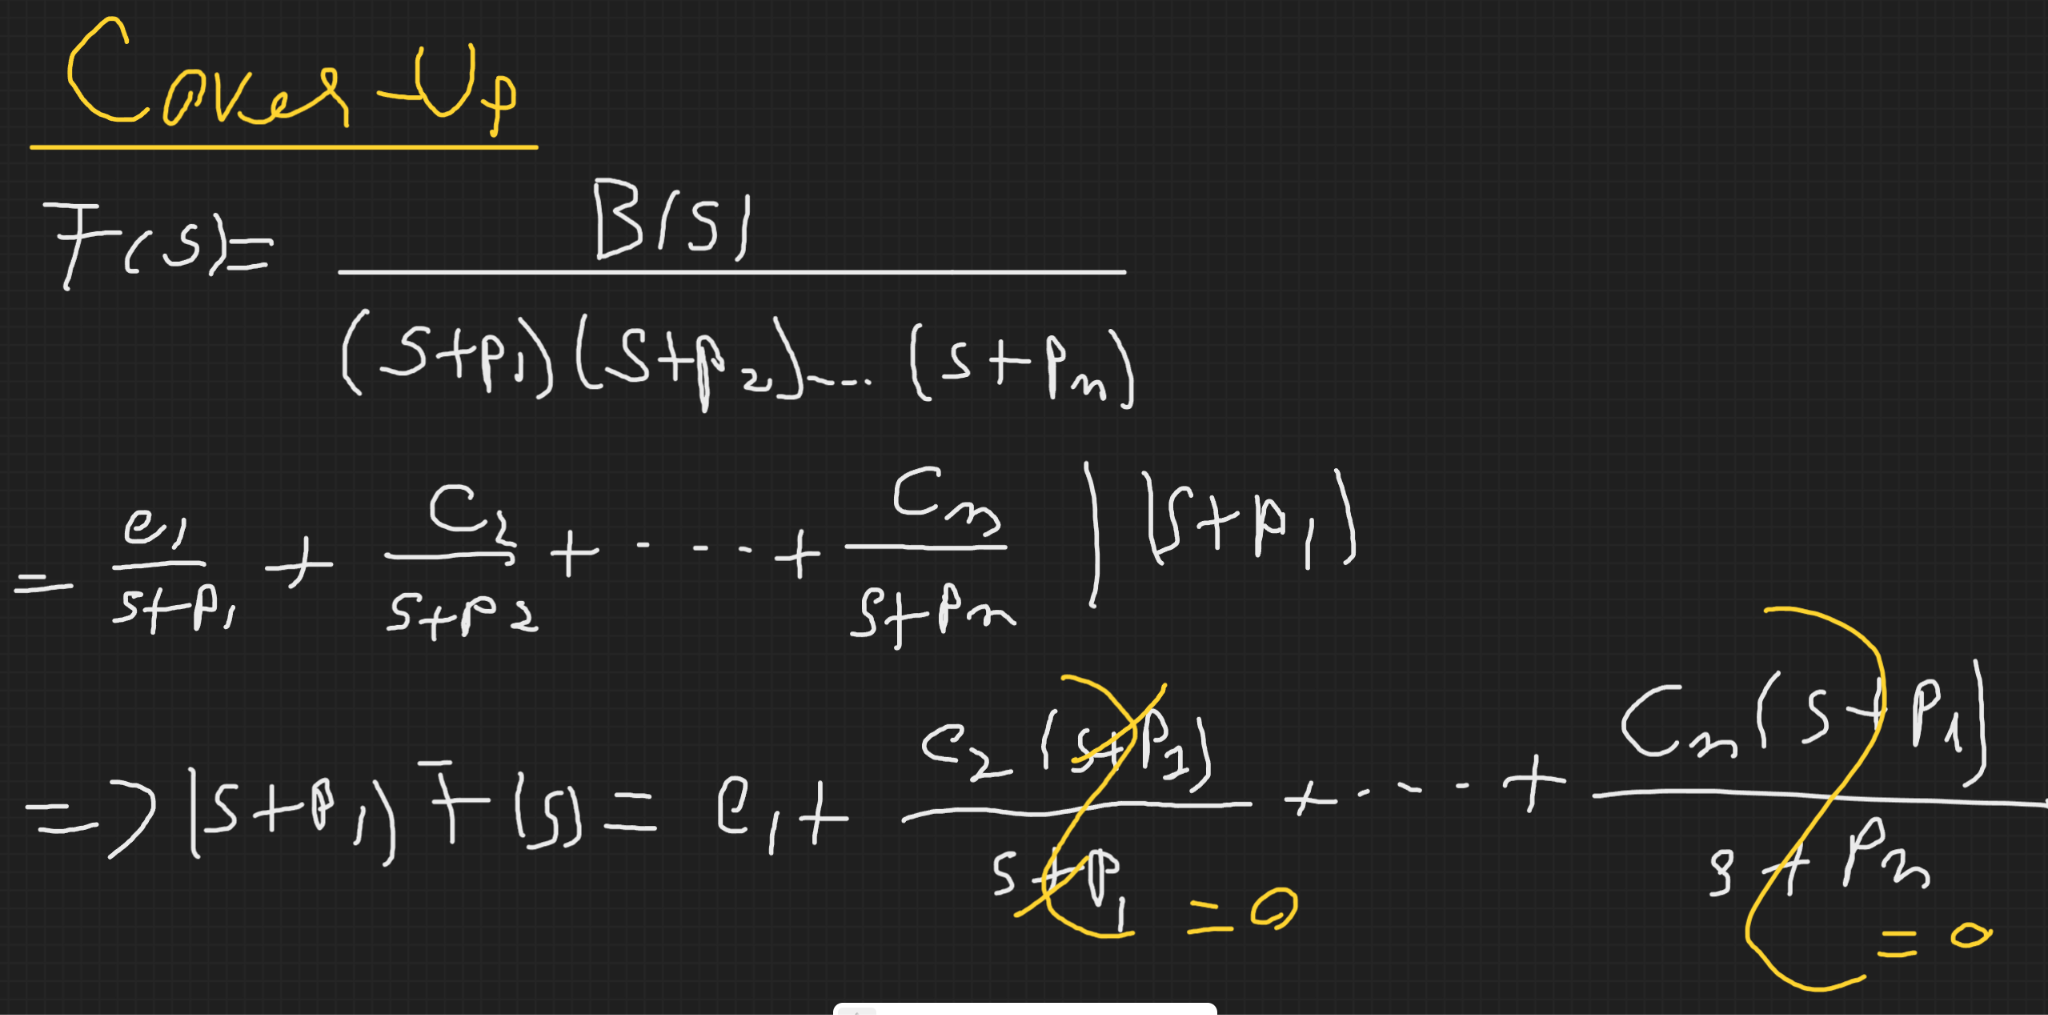 Cover-Up
F(s)= B(s) / (s+p₁)(s+p₂)... (s+pₙ)
= e₁/(s+p₁) + C₂/(s+p₂) + ---- + Cₙ/(s+pₙ) | (s+p₁)
=> (s+p₁) F(s) = e₁ + C₂(s+p₁)/(s+p₁) =0 + ---- + Cₙ(s+p₁)/(s+pₙ) =0